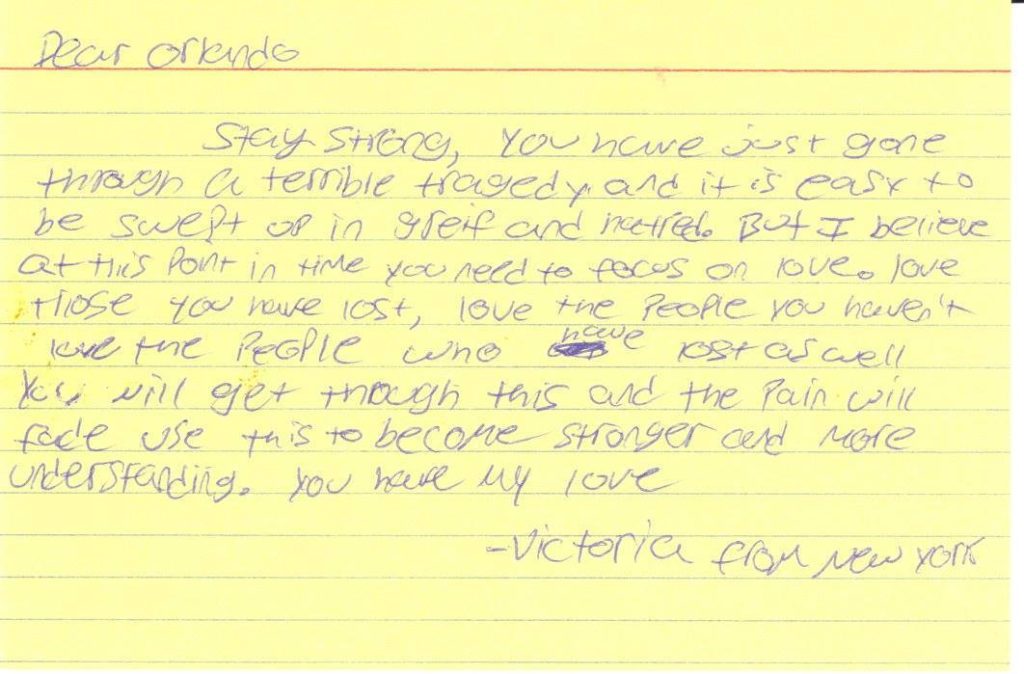 Dear Orlando
Stay Strong, You have just gone
through a terrible tragedy. and it is easy to
be swept up in greif and hatred. But I believe
at this Pont in time you need to focus on love. love
those you have lost, love the People you haven't
love the PEOPLE who have lost as well
You will get through this and the Pain will
fade use this to become stronger and more
understanding. You have my love
-Victoria from New York